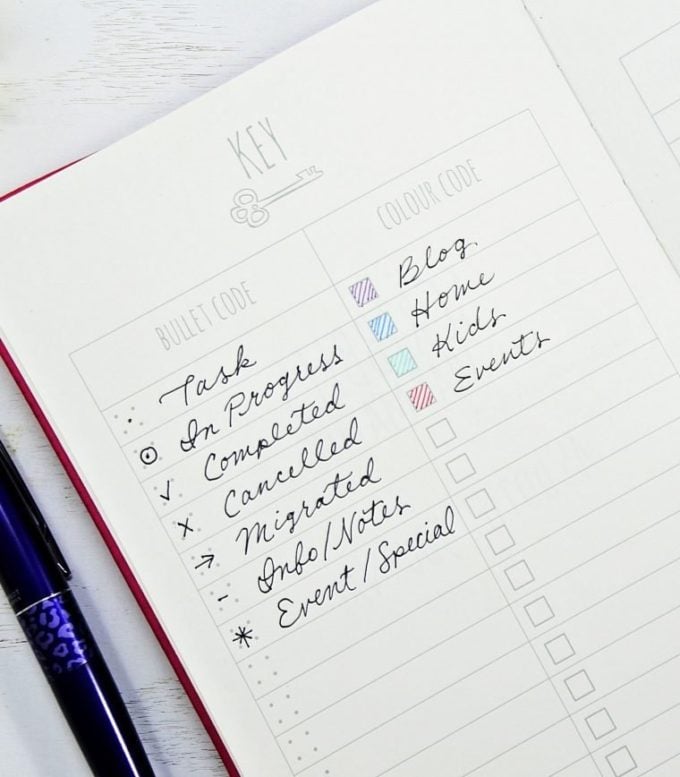 KEY
BULLET CODE
· Task
⊙ In Progress
✓ Completed
x Cancelled
→ Migrated
- Info/Notes
* Event/Special
COLOUR CODE
Blog
Home
Kids
Events